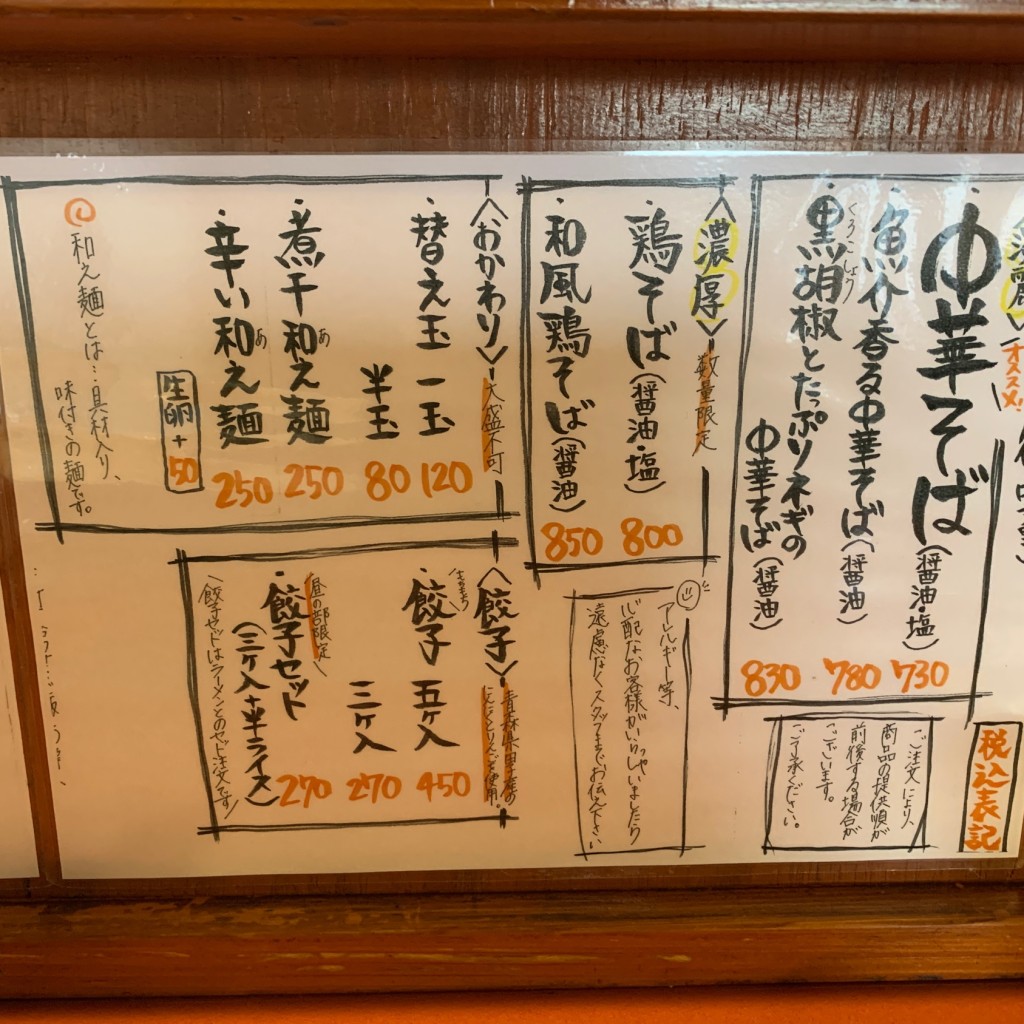 オススメ!
中華そば(醤油・塩) 730
魚介香る中華そば(醤油) 780
黒胡椒とたっぷりネギの
くろこしょう
中華そば(醤油) 830
税込表記
ご注文により、
商品の提供順が
前後する場合が
ございます。
ご了承ください。
<濃厚> 数量限定
鶏そば(醤油・塩) 800
和風鶏そば(醤油) 850
アレルギー等、
心配なお客様がいらっしゃいましたら
遠慮なくスタッフまでお伝え下さい
<おかわり> 大盛不可
替え玉 一玉 120
半玉 80
煮干和え麺 250
あ
辛い和え麺 250
あ
生卵+50
和え麺とは…具材入り、
味付きの麺です。
<餃子> 青森県田子産の
にんにくを使用
餃子 五ヶ入 450
三ヶ入 270
昼の部限定
餃子セット
(三ヶ入+半ライス) 270
(餃子セットはラーメンとのセット注文です)